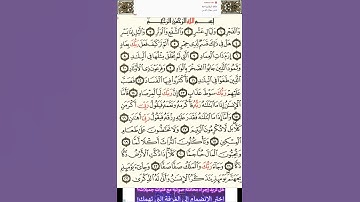 بِسْمِ اللَّهِ الرَّحْمَٰنِ الرَّحِيمِ
وَالْفَجْرِ ١ وَلَيَالٍ عَشْرٍ ٢ وَالشَّفْعِ وَالْوَتْرِ ٣ وَاللَّيْلِ إِذَا يَسْرِ ٤
هَلْ فِي ذَٰلِكَ قَسَمٌ لِذِي حِجْرٍ ٥ أَلَمْ تَرَ كَيْفَ فَعَلَ رَبُّكَ بِعَادٍ ٦
إِرَمَ ذَاتِ الْعِمَادِ ٧ الَّتِي لَمْ يُخْلَقْ مِثْلُهَا فِي الْبِلَادِ ٨
وَثَمُودَ الَّذِينَ جَابُوا الصَّخْرَ بِالْوَادِ ٩ وَفِرْعَوْنَ ذِي الْأَوْتَادِ ١٠
الَّذِينَ طَغَوْا فِي الْبِلَادِ ١١ فَأَكْثَرُوا فِيهَا الْفَسَادَ ١٢ فَصَبَّ عَلَيْهِمْ
رَبُّكَ سَوْطَ عَذَابٍ ١٣ إِنَّ رَبَّكَ لَبِالْمِرْصَادِ ١٤ فَأَمَّا الْإِنْسَانُ
إِذَا مَا ابْتَلَاهُ رَبُّهُ فَأَكْرَمَهُ وَنَعَّمَهُ فَيَقُولُ رَبِّي أَكْرَمَنِ ١٥
وَأَمَّا إِذَا مَا ابْتَلَاهُ فَقَدَرَ عَلَيْهِ رِزْقَهُ فَيَقُولُ رَبِّي أَهَانَنِ ١٦
كَلَّا بَلْ لَا تُكْرِمُونَ الْيَتِيمَ ١٧ وَلَا تَحَاضُّونَ عَلَىٰ طَعَامِ
الْمِسْكِينِ ١٨ وَتَأْكُلُونَ التُّرَاثَ أَكْلًا لَمًّا ١٩
وَتُحِبُّونَ الْمَالَ حُبًّا جَمًّا ٢٠ كَلَّا إِذَا دُكَّتِ الْأَرْضُ
دَكًّا دَكًّا ٢١ وَجَاءَ رَبُّكَ وَالْمَلَكُ صَفًّا صَفًّا ٢٢ وَجِيءَ
يَوْمَئِذٍ بِجَهَنَّمَ يَوْمَئِذٍ يَتَذَكَّرُ الْإِنْسَانُ وَأَنَّىٰ لَهُ الذِّكْرَىٰ ٢٣
هل تريد إجراء محادثة صوتية مع فتيات جميلات؟
اختر الانضمام إلى الغرفة التي تهمك!